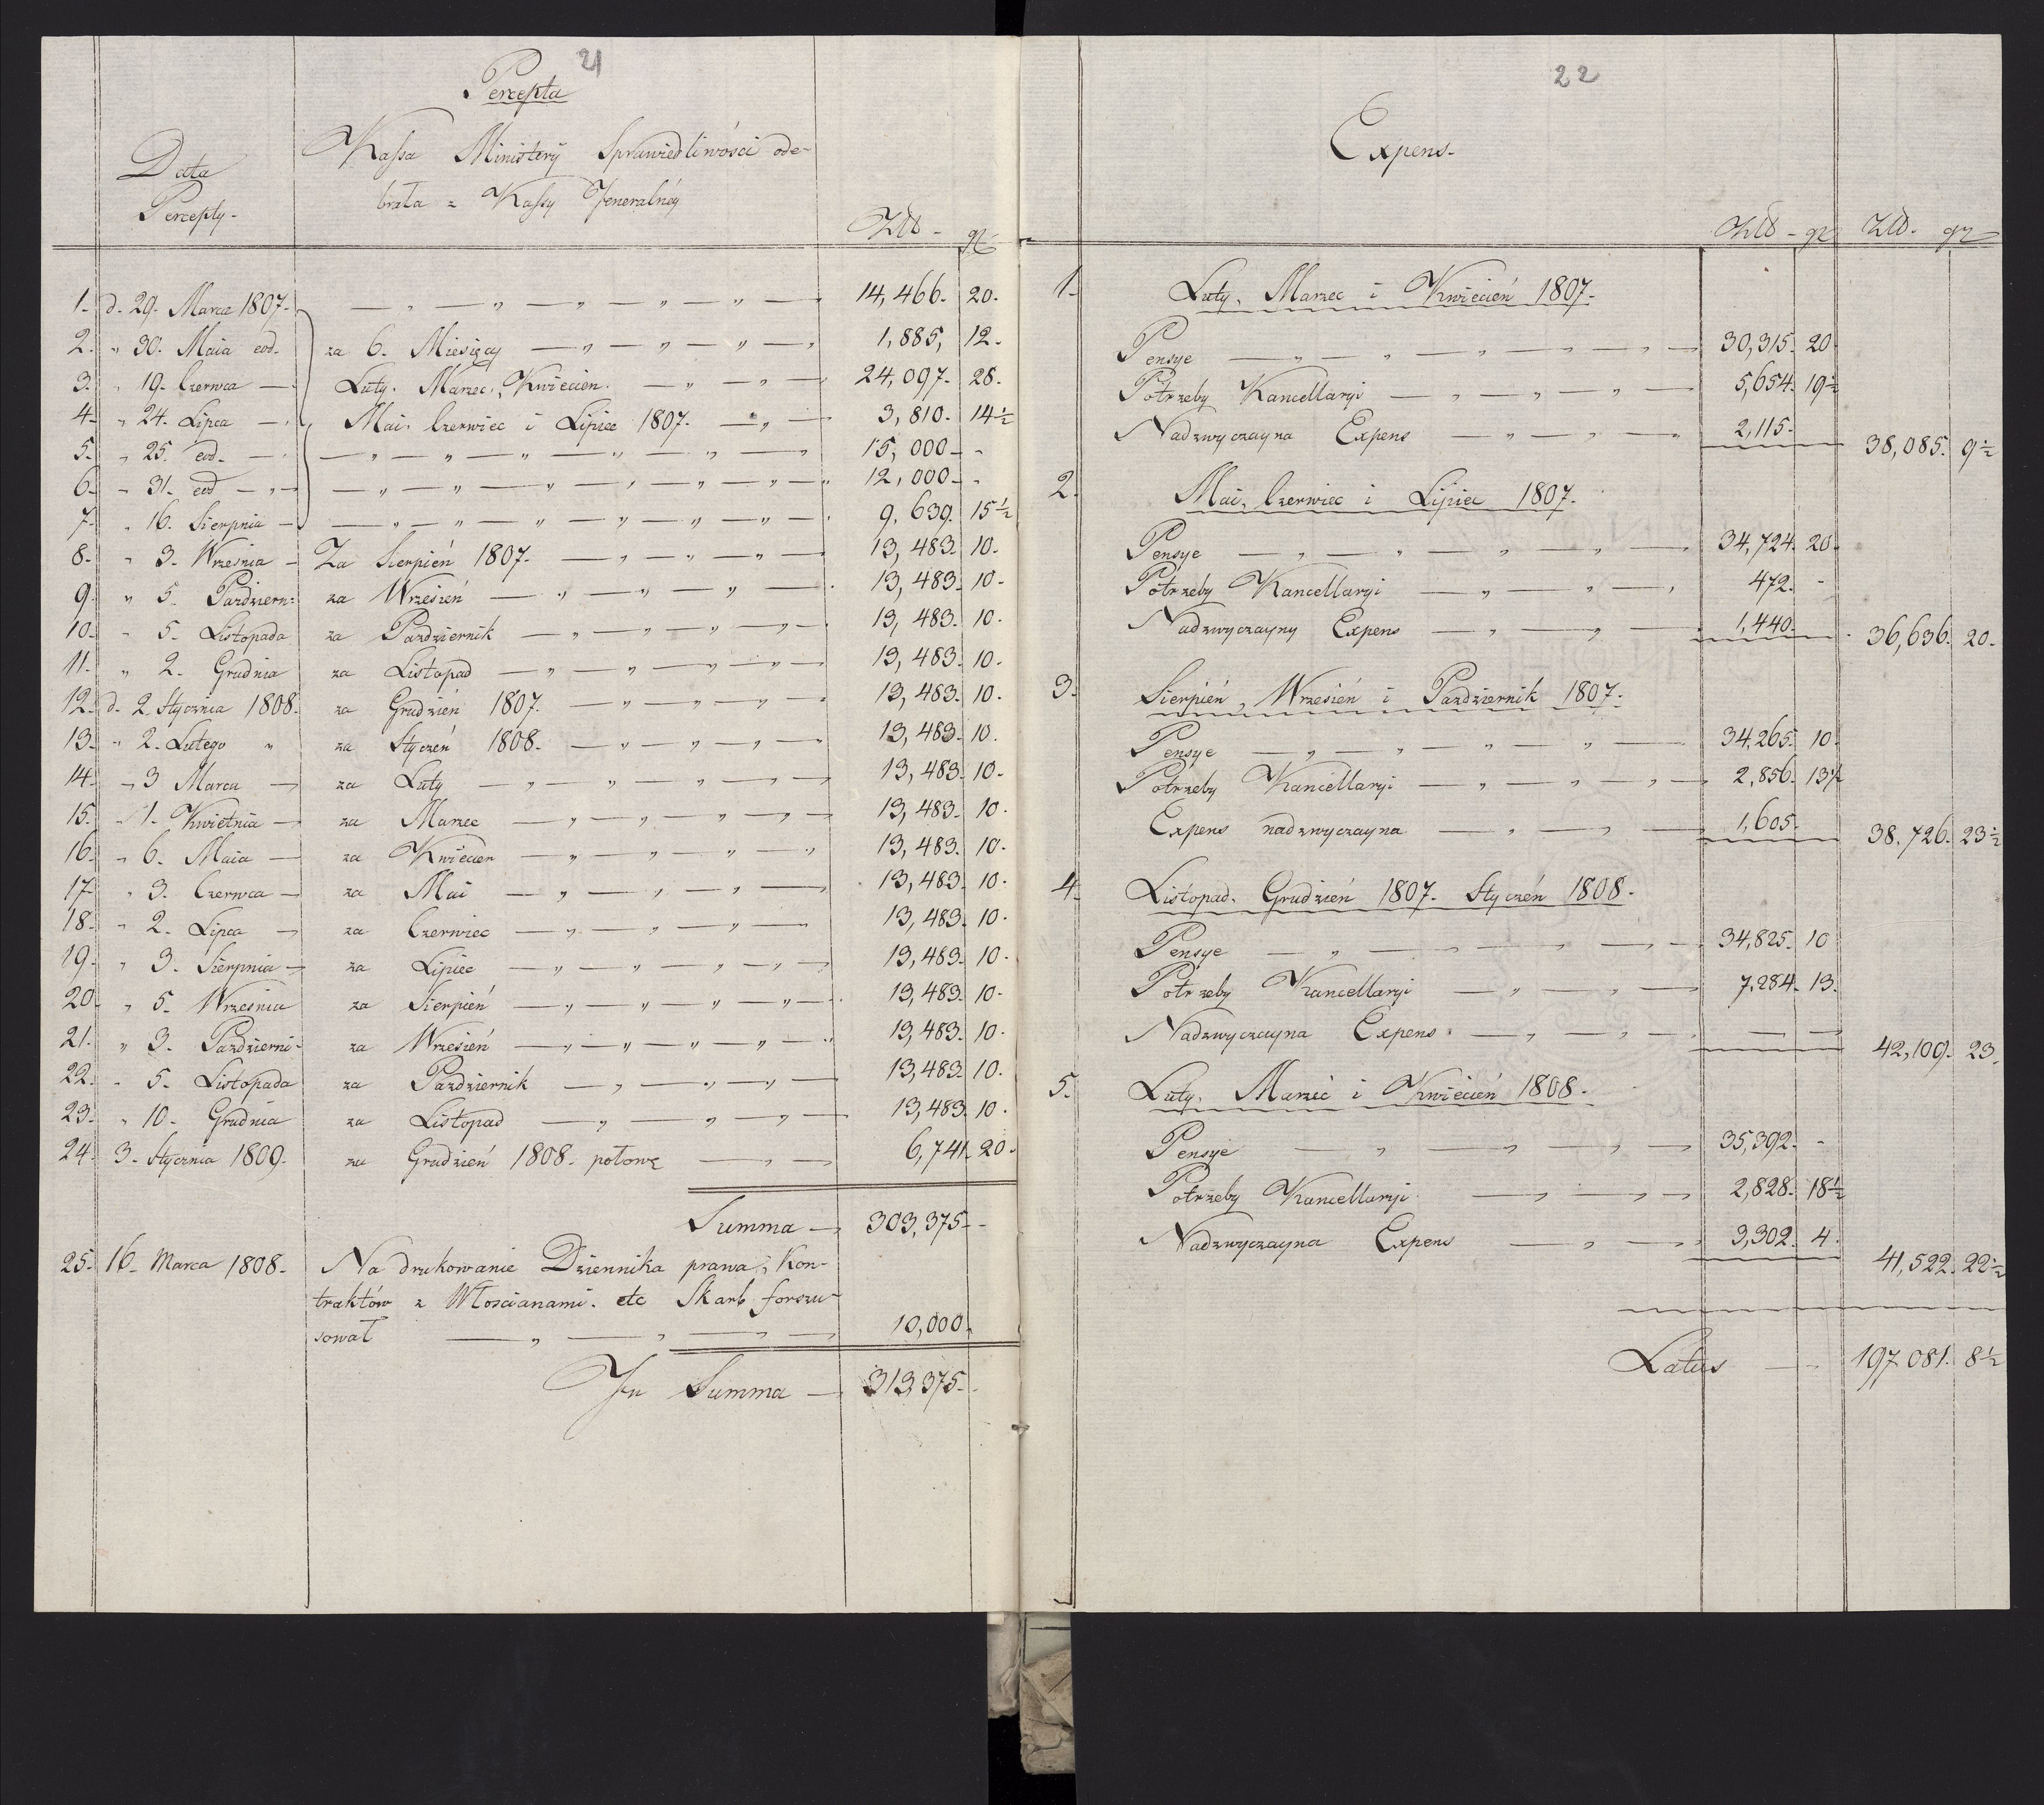 21
Percepta
Data
Percepty -
Kassa Ministerÿ Sprawiedliwości ode-
brała z Kassy Jeneralnéy
Złł - gr
1. d. 29. Marca 1807. 14,466. 20.
2. " 30. Maia eod. za 6. Miesięcy 1,885, 12.
3. " 19. Czerwca Luty. Marzec, Kwiecien. 24,097. 28.
4. " 24. Lipca Mai. Czerwiec i Lipiec 1807. 3,810. 14½
5. " 25. eod. 15,000 -
6. " 31. eod 12,000 -
7. " 16. Sierpnia 9,639. 15½
8. " 3. Wrzesnia Za Sierpień 1807. 13,483. 10.
9. " 5. Pazdziern: za Wrzesień 13,483. 10.
10. " 5. Listopada za Pazdziernik 13,483. 10.
11. " 2. Grudnia za Listopad 13,483. 10.
12. d. 2. Stycznia 1808. za Grudzień 1807. 13,483. 10.
13. " 2. Lutego " za Styczeń 1808. 13,483. 10.
14. " 3 Marca za Luty 13,483. 10.
15. " 1. Kwietnia za Marzec 13,483. 10.
16. " 6. Maia za Kwiecien 13,483. 10.
17. " 3. Czerwca za Mai 13,483. 10.
18. " 2. Lipca za Czerwiec 13,483. 10.
19. " 3. Sierpnia za Lipiec 13,483. 10.
20. " 5. Wrzesnia za Sierpień 13,483. 10.
21. " 3. Pazdzierni- za Wrzesień 13,483. 10.
22. " 5. Listopada za Pazdziernik 13,483. 10.
23. " 10. Grudnia za Listopad 13,483. 10.
24. 3. Stycznia 1809. za Grudzień 1808. połowę 6,741. 20.
Summa 303,375. -
25. 16. Marca 1808. Na drukowanie Dziennika prawa, Kon-
traktów z Włoscianami. etc Skarb forszu-
sował 10,000.
In Summa 313,375. -
22
Expens.
Złł - gr Złł. gr
1. Luty, Marzec i Kwiecień 1807.
Pensye 30,315. 20
Potrzeby Kancellaryi 5,654. 19½
Nadzwyczayna Expens 2,115. 38,085. 9½
2. Mai, Czerwiec i Lipiec 1807.
Pensye 34,724. 20.
Potrzeby Kancellaryi 472. -
Nadzwyczayny Expens 1,440. 36,636. 20.
3. Sierpień, Wrzesień i Pazdziernik 1807.
Pensye 34,265. 10.
Potrzeby Kancellaryi 2,856. 13½
Expens nadzwyczayna 1,605. 38,726. 23½
4. Listopad. Grudzień 1807. Styczeń 1808.
Pensye 34,825. 10
Potrzeby Kancellaryi 7,284. 13.
Nadzwyczayna Expens 42,109. 23.
5. Luty, Marzec i Kwiecień 1808.
Pensye 35,392. -
Potrzeby Kancellaryi 2,828. 18½
Nadzwyczayna Expens 3,302. 4. 41,522. 22½
Latus 197.081. 8½